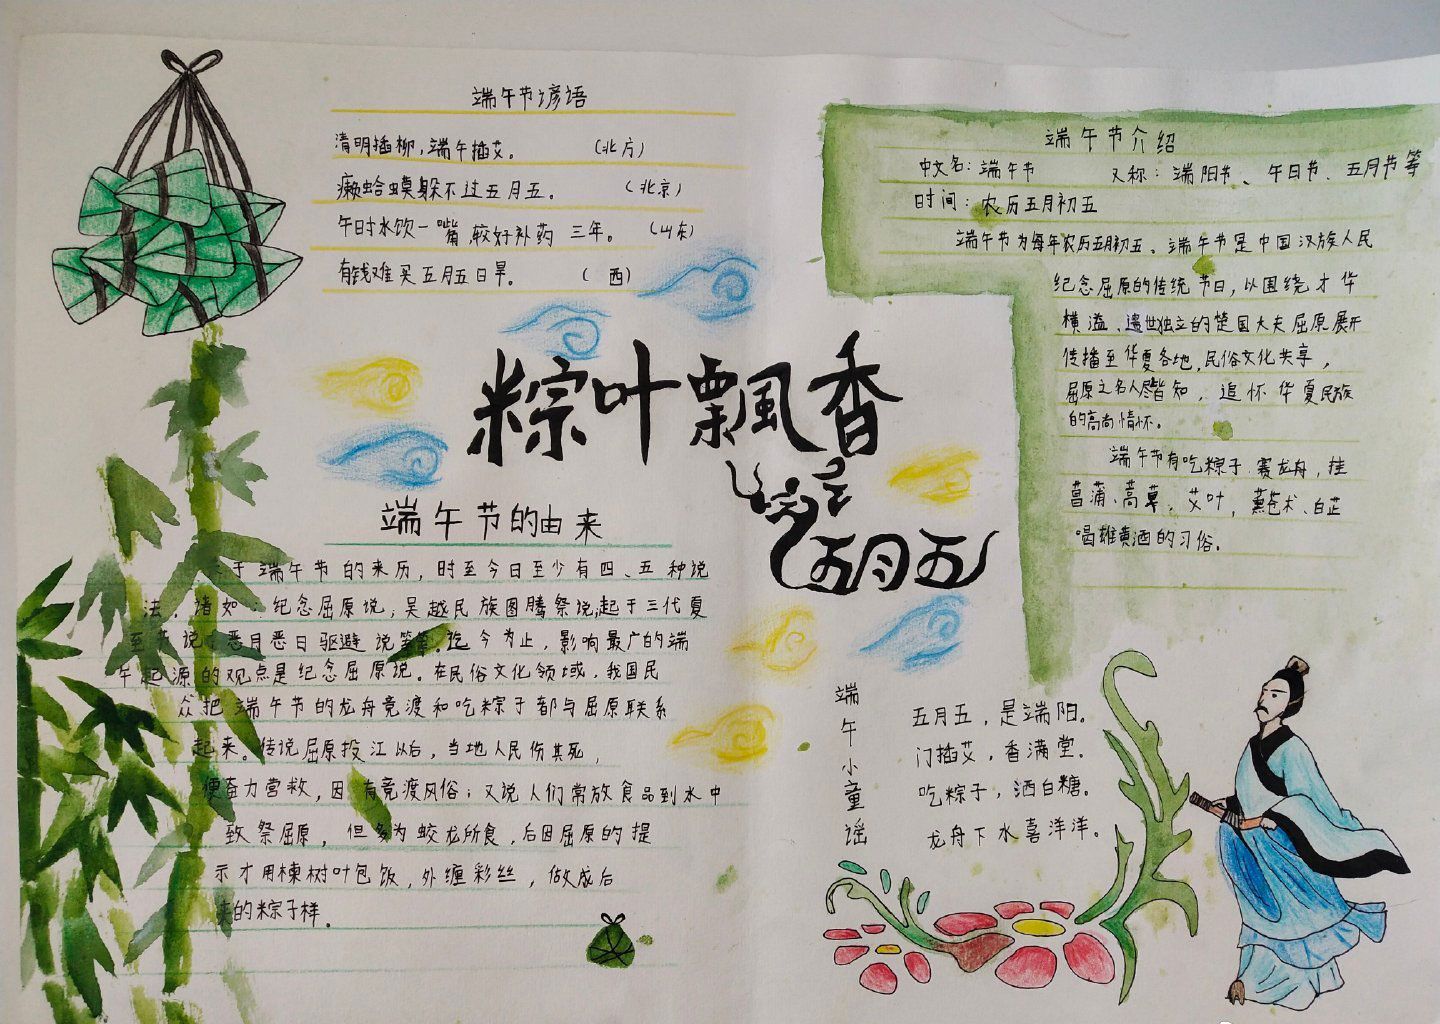 端午节谚语
清明插柳，端午插艾。 （北方）
癞蛤蟆躲不过五月五。 （北京）
午时水饮一嘴，较好补药三年。 （山东）
有钱难买五月五日旱。 （ 西）
粽叶飘香
五月五
端午节的由来
于端午节的来历，时至今日至少有四、五种说
法，诸如：纪念屈原说；吴越民族图腾祭说；起于三代夏
至节说；恶月恶日驱避说等等。迄今为止，影响最广的端
午起源的观点是纪念屈原说。在民俗文化领域，我国民
众把端午节的龙舟竞渡和吃粽子都与屈原联系
起来。传说屈原投江以后，当地人民伤其死，
便奋力营救，因有竞渡风俗；又说人们常放食品到水中
致祭屈原，但多为蛟龙所食，后因屈原的提
示才用楝树叶包饭，外缠彩丝，做成后
来的粽子样。
端午节介绍
中文名：端午节 又称：端阳节、午日节、五月节等
时间：农历五月初五
端午节为每年农历五月初五、端午节是中国汉族人民
纪念屈原的传统节日，以围绕才华
横溢、遗世独立的楚国大夫屈原展开
传播至华夏各地，民俗文化共享，
屈原之名人尽皆知，追怀华夏民族
的高尚情怀。
端午节有吃粽子，赛龙舟，挂
菖蒲、蒿草，艾叶，薰苍术、白芷
喝雄黄酒的习俗。
端午小童谣
五月五，是端阳。
门插艾，香满堂。
吃粽子，洒白糖。
龙舟下水喜洋洋。